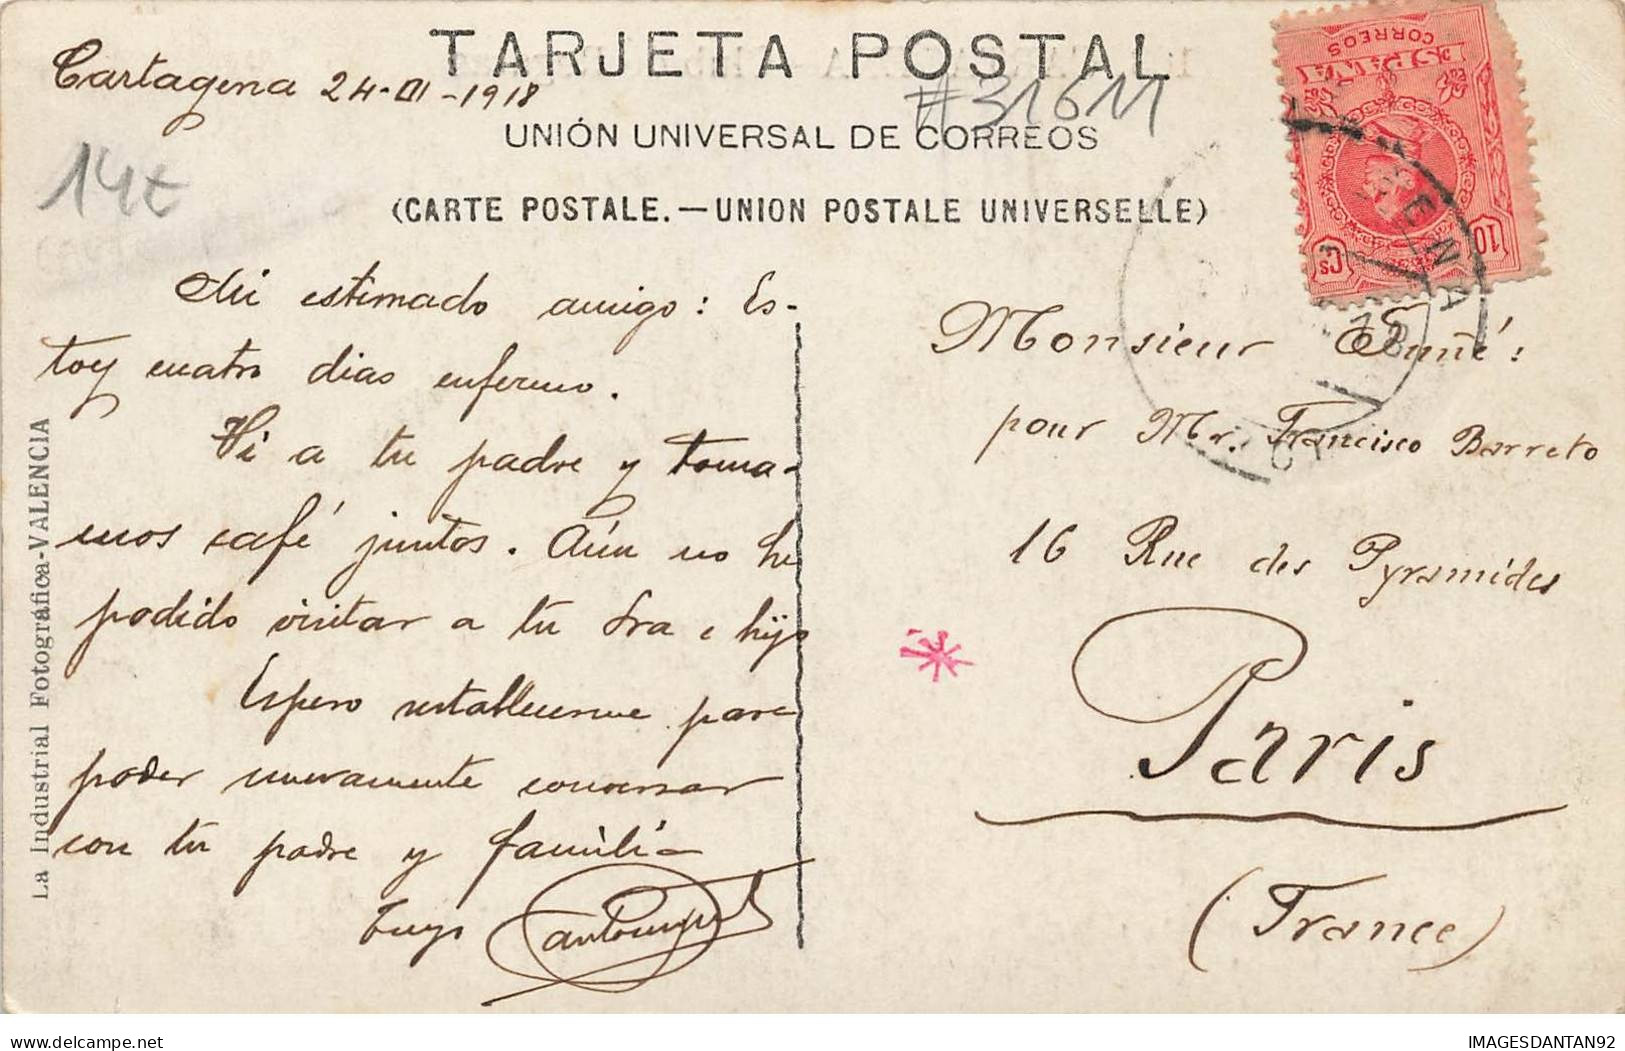 TARJETA POSTAL
Cartagena 24-III-1918
#31611
UNIÓN UNIVERSAL DE CORREOS
14€
(CARTE POSTALE.—UNION POSTALE UNIVERSELLE)
ESPAÑA
CORREOS
10 Cs
Mi estimado amigo: Es-
toy cuatro dias enfermo.
Vi a tu padre y toma-
mos café juntos. Aún no he
podido visitar a tu Sra e hijo
Espero restablecerme para
poder nuevamente conversar
con tu padre y familia
Tuyo
Monsieur
pour Mr. Francisco Barreto
16 Rue des Pyramides
Paris
(France)
La Industrial Fotográfica-VALENCIA
IMAGESDANTAN92
delcampe.net